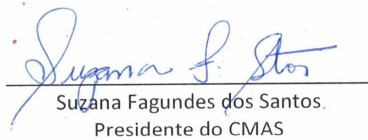 Suzana F. Stos
Suzana Fagundes dos Santos
Presidente do CMAS